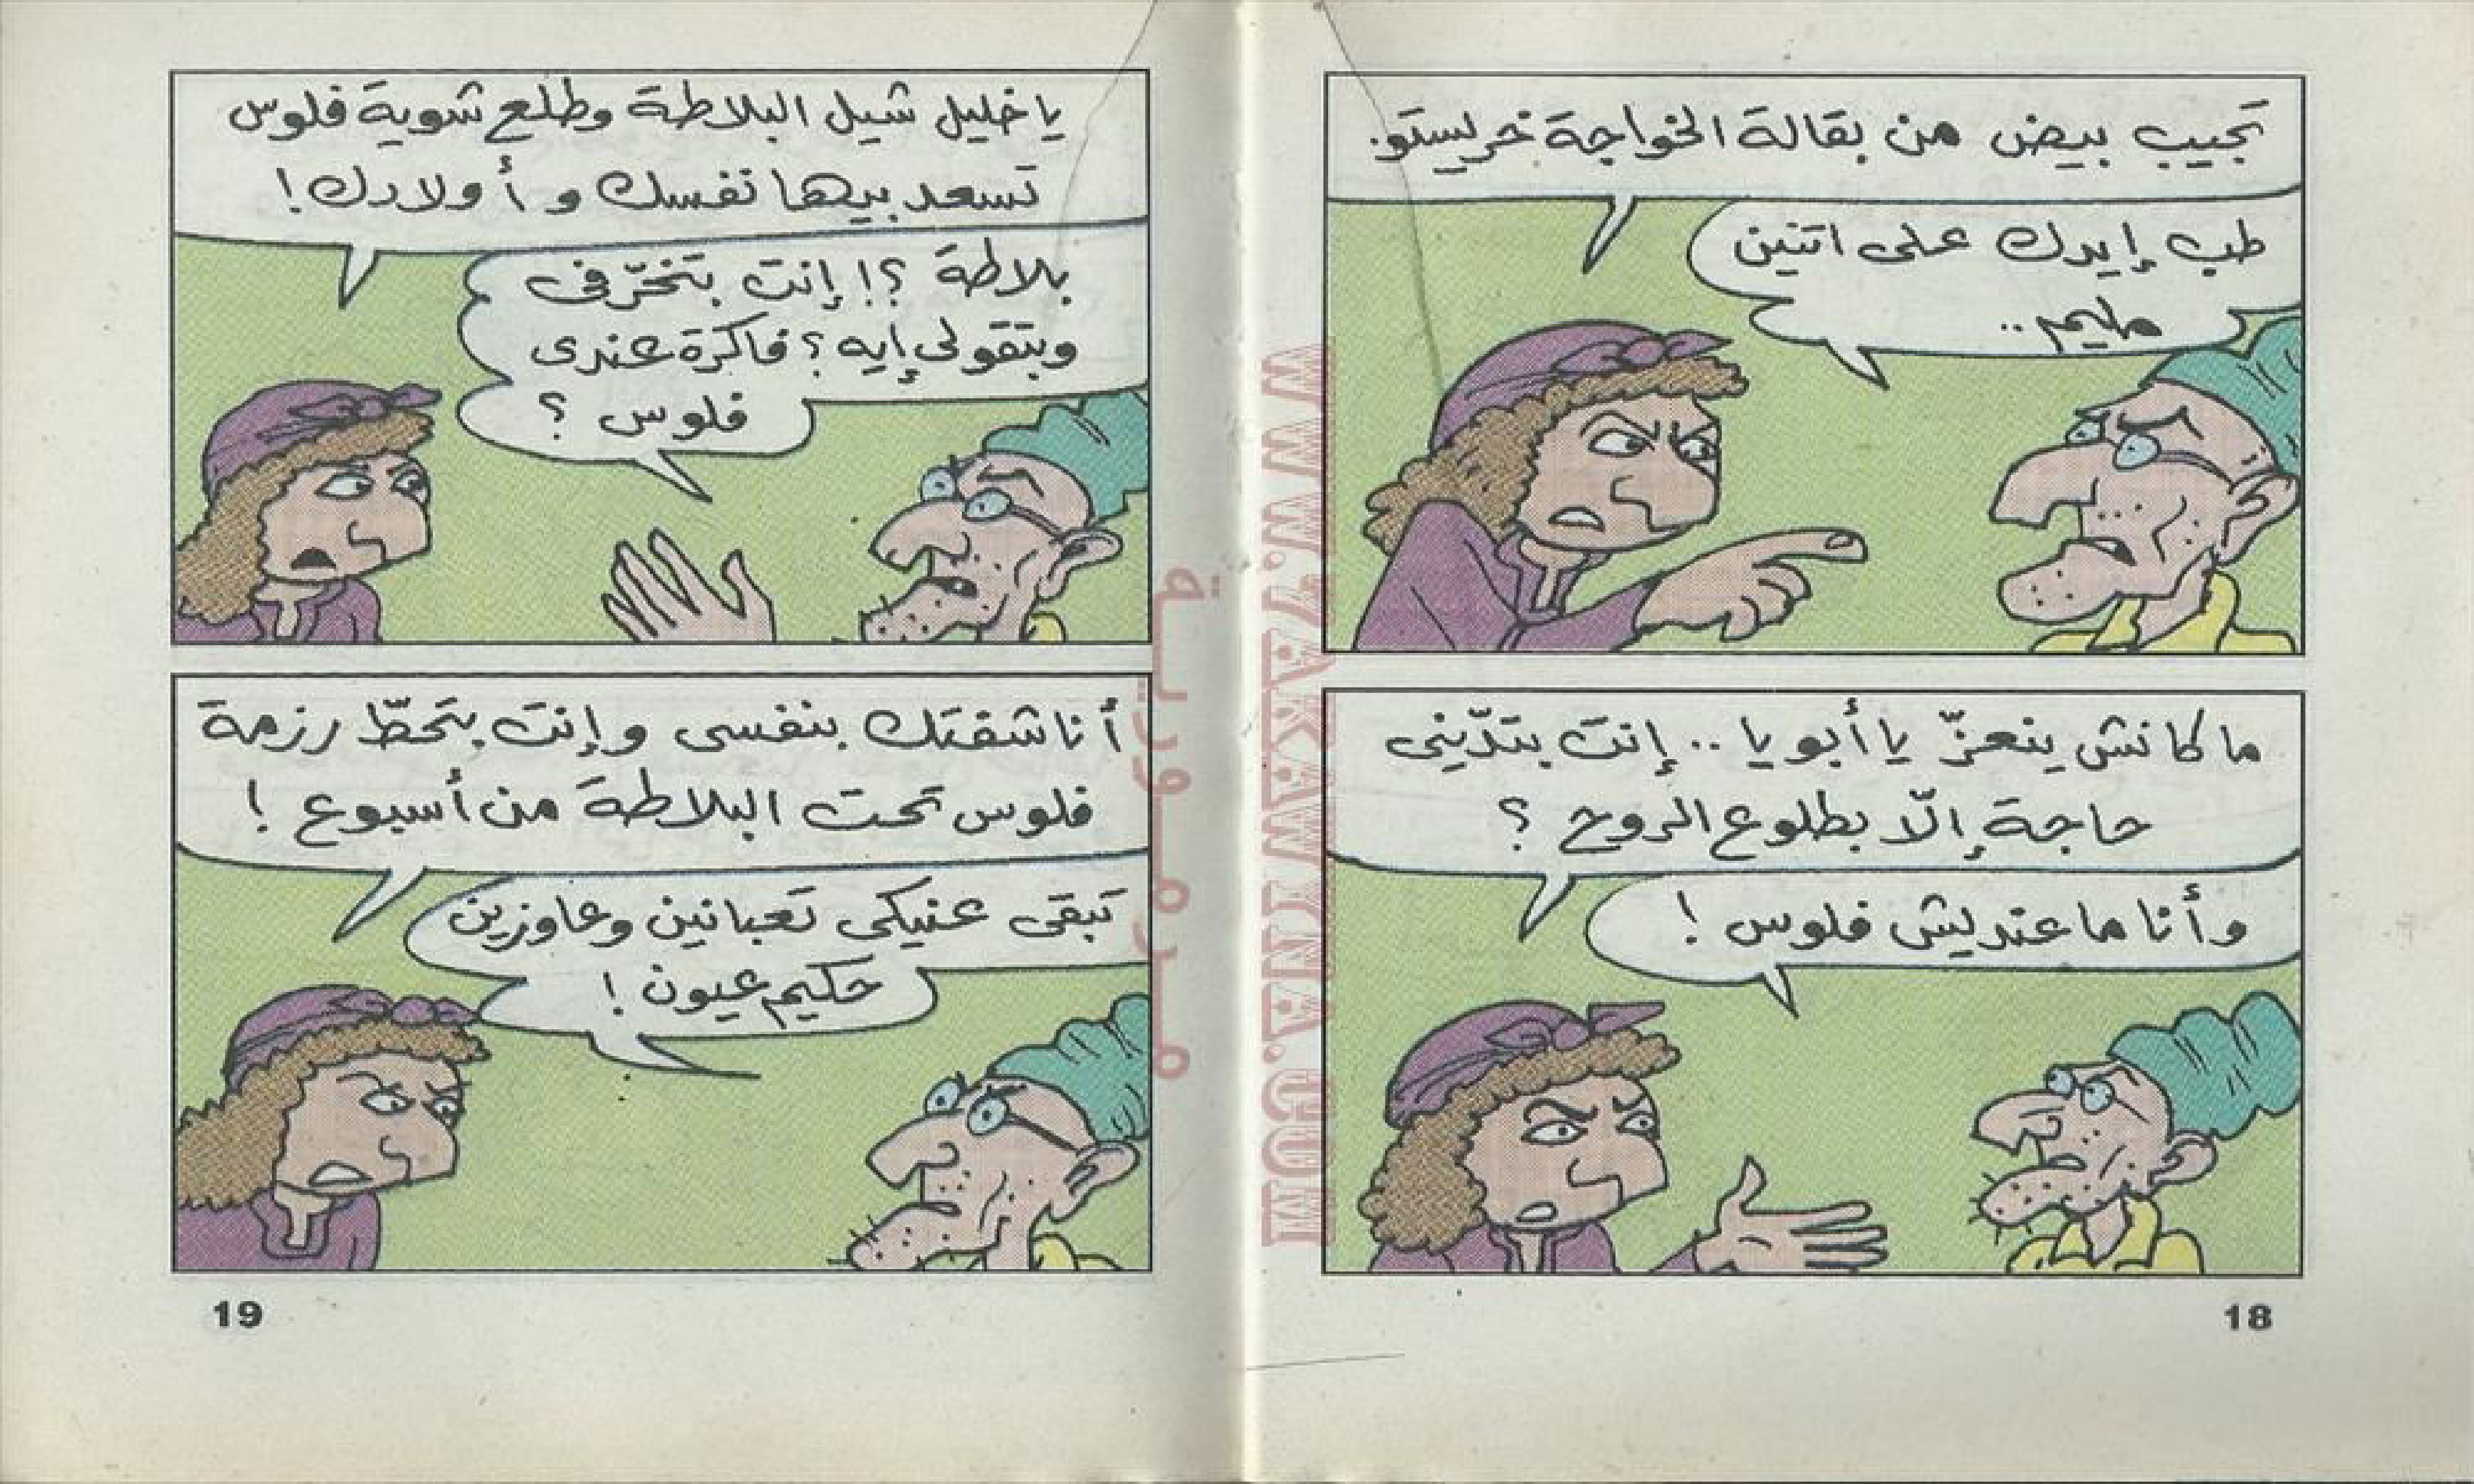 تجيب بيض من بقالة الخواجة خريستو.
طب إيدك على اتنين
مليم..
ما كانش ينعزّ يا أبويا.. إنت بتدّينى
حاجة إلّا بطلوع الروح ؟
وأنا ما عنديش فلوس !
18
يا خليل شيل البلاطة وطلع شوية فلوس
تسعد بيها نفسك و أولادك !
بلاطة ؟! إنت بتخرّفى
وبتقولى إيه ؟ فاكرة عندى
فلوس ؟
أنا شفتك بنفسى وإنت بتحطّ رزمة
فلوس تحت البلاطة من أسبوع !
تبقى عنيكى تعبانين وعاوزين
حكيم عيون !
19
WWW.7AKAWINA.COM